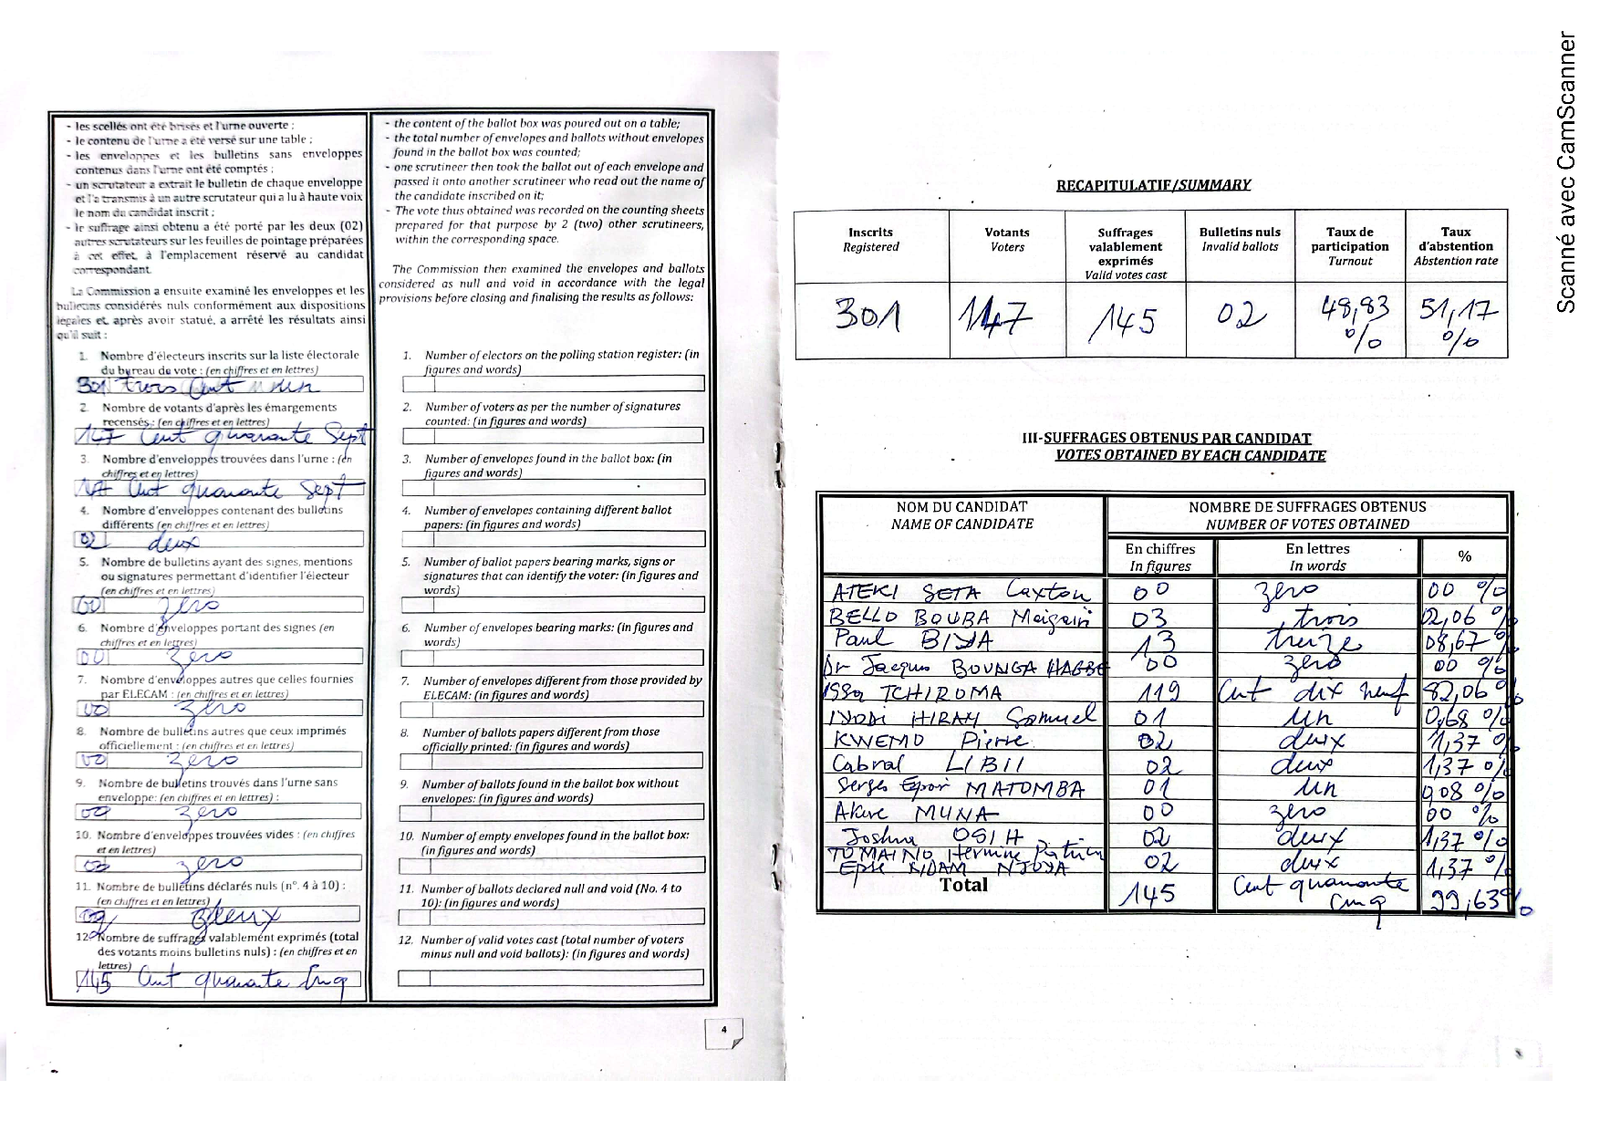 - les scellés ont été brisés et l'urne ouverte ;
- le contenu de l'urne a été versé sur une table ;
- les enveloppes et les bulletins sans enveloppes
contenus dans l'urne ont été comptés ;
- un scrutateur a extrait le bulletin de chaque enveloppe
et l'a transmis à un autre scrutateur qui a lu à haute voix
le nom du candidat inscrit ;
- le suffrage ainsi obtenu a été porté par les deux (02)
autres scrutateurs sur les feuilles de pointage préparées
à cet effet, à l'emplacement réservé au candidat
correspondant.
La Commission a ensuite examiné les enveloppes et les
bulletins considérés nuls conformément aux dispositions
légales et, après avoir statué, a arrêté les résultats ainsi
qu'il suit :
1. Nombre d'électeurs inscrits sur la liste électorale
du bureau de vote : (en chiffres et en lettres)
301 trois Cent un
2. Nombre de votants d'après les émargements
recensés : (en chiffres et en lettres)
147 Cent quarante Sept
3. Nombre d'enveloppes trouvées dans l'urne : (en
chiffres et en lettres)
147 Cent quarante Sept
4. Nombre d'enveloppes contenant des bulletins
différents (en chiffres et en lettres)
02 deux
5. Nombre de bulletins ayant des signes, mentions
ou signatures permettant d'identifier l'électeur
(en chiffres et en lettres)
00 zero
6. Nombre d'enveloppes portant des signes (en
chiffres et en lettres)
00 zero
7. Nombre d'enveloppes autres que celles fournies
par ELECAM : (en chiffres et en lettres)
00 zero
8. Nombre de bulletins autres que ceux imprimés
officiellement : (en chiffres et en lettres)
00 zero
9. Nombre de bulletins trouvés dans l'urne sans
enveloppe: (en chiffres et en lettres)
00 zero
10. Nombre d'enveloppes trouvées vides : (en chiffres
et en lettres)
00 zero
11. Nombre de bulletins déclarés nuls (n°. 4 à 10) :
(en chiffres et en lettres)
02 deux
12. Nombre de suffrages valablement exprimés (total
des votants moins bulletins nuls) : (en chiffres et en
lettres)
145 Cent quarante Cinq
- the content of the ballot box was poured out on a table;
- the total number of envelopes and ballots without envelopes
found in the ballot box was counted;
- one scrutineer then took the ballot out of each envelope and
passed it onto another scrutineer who read out the name of
the candidate inscribed on it;
- The vote thus obtained was recorded on the counting sheets
prepared for that purpose by 2 (two) other scrutineers,
within the corresponding space.
The Commission then examined the envelopes and ballots
considered as null and void in accordance with the legal
provisions before closing and finalising the results as follows:
1. Number of electors on the polling station register: (in
figures and words)
2. Number of voters as per the number of signatures
counted: (in figures and words)
3. Number of envelopes found in the ballot box: (in
figures and words)
4. Number of envelopes containing different ballot
papers: (in figures and words)
5. Number of ballot papers bearing marks, signs or
signatures that can identify the voter: (in figures and
words)
6. Number of envelopes bearing marks: (in figures and
words)
7. Number of envelopes different from those provided by
ELECAM: (in figures and words)
8. Number of ballots papers different from those
officially printed: (in figures and words)
9. Number of ballots found in the ballot box without
envelopes: (in figures and words)
10. Number of empty envelopes found in the ballot box:
(in figures and words)
11. Number of ballots declared null and void (No. 4 to
10): (in figures and words)
12. Number of valid votes cast (total number of voters
minus null and void ballots): (in figures and words)
4
RECAPITULATIF/SUMMARY
Inscrits Registered | Votants Voters | Suffrages valablement exprimés Valid votes cast | Bulletins nuls Invalid ballots | Taux de participation Turnout | Taux d'abstention Abstention rate
301 | 147 | 145 | 02 | 48,83 % | 51,17 %
III-SUFFRAGES OBTENUS PAR CANDIDAT
VOTES OBTAINED BY EACH CANDIDATE
NOM DU CANDIDAT NAME OF CANDIDATE | NOMBRE DE SUFFRAGES OBTENUS NUMBER OF VOTES OBTAINED
En chiffres In figures | En lettres In words | %
ATEKI SETA Caxton | 00 | zero | 00 %
BELLO BOUBA Maigari | 03 | trois | 02,06 %
Paul BIYA | 13 | treize | 08,67 %
Dr Jacques BOUNGA HAGBE | 00 | zero | 00 %
Issa TCHIROMA | 119 | Cent dix neuf | 82,06 %
HIRAM Samuel | 01 | un | 0,68 %
KWEMO Pierre | 02 | deux | 1,37 %
Cabral LIBII | 02 | deux | 1,37 %
Serges Espoir MATOMBA | 01 | un | 0,08 %
Akere MUNA | 00 | zero | 00 %
Joshua OSIH | 02 | deux | 1,37 %
TOMAINO Hermine Patricia
Epse NDAM NJOYA | 02 | deux | 1,37 %
Total | 145 | Cent quarante Cinq | 99,63 %
Scanné avec CamScanner